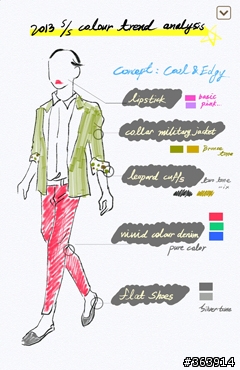 2013 S/S colour trend analysis
Concept : Cool & Edgy
lipstick
basic
pink
collar military jacket
Bronze
tone
leopard cuffs
two tone
mix
vivid colour denim
pure color
flat shoes
Silver tone
#363914